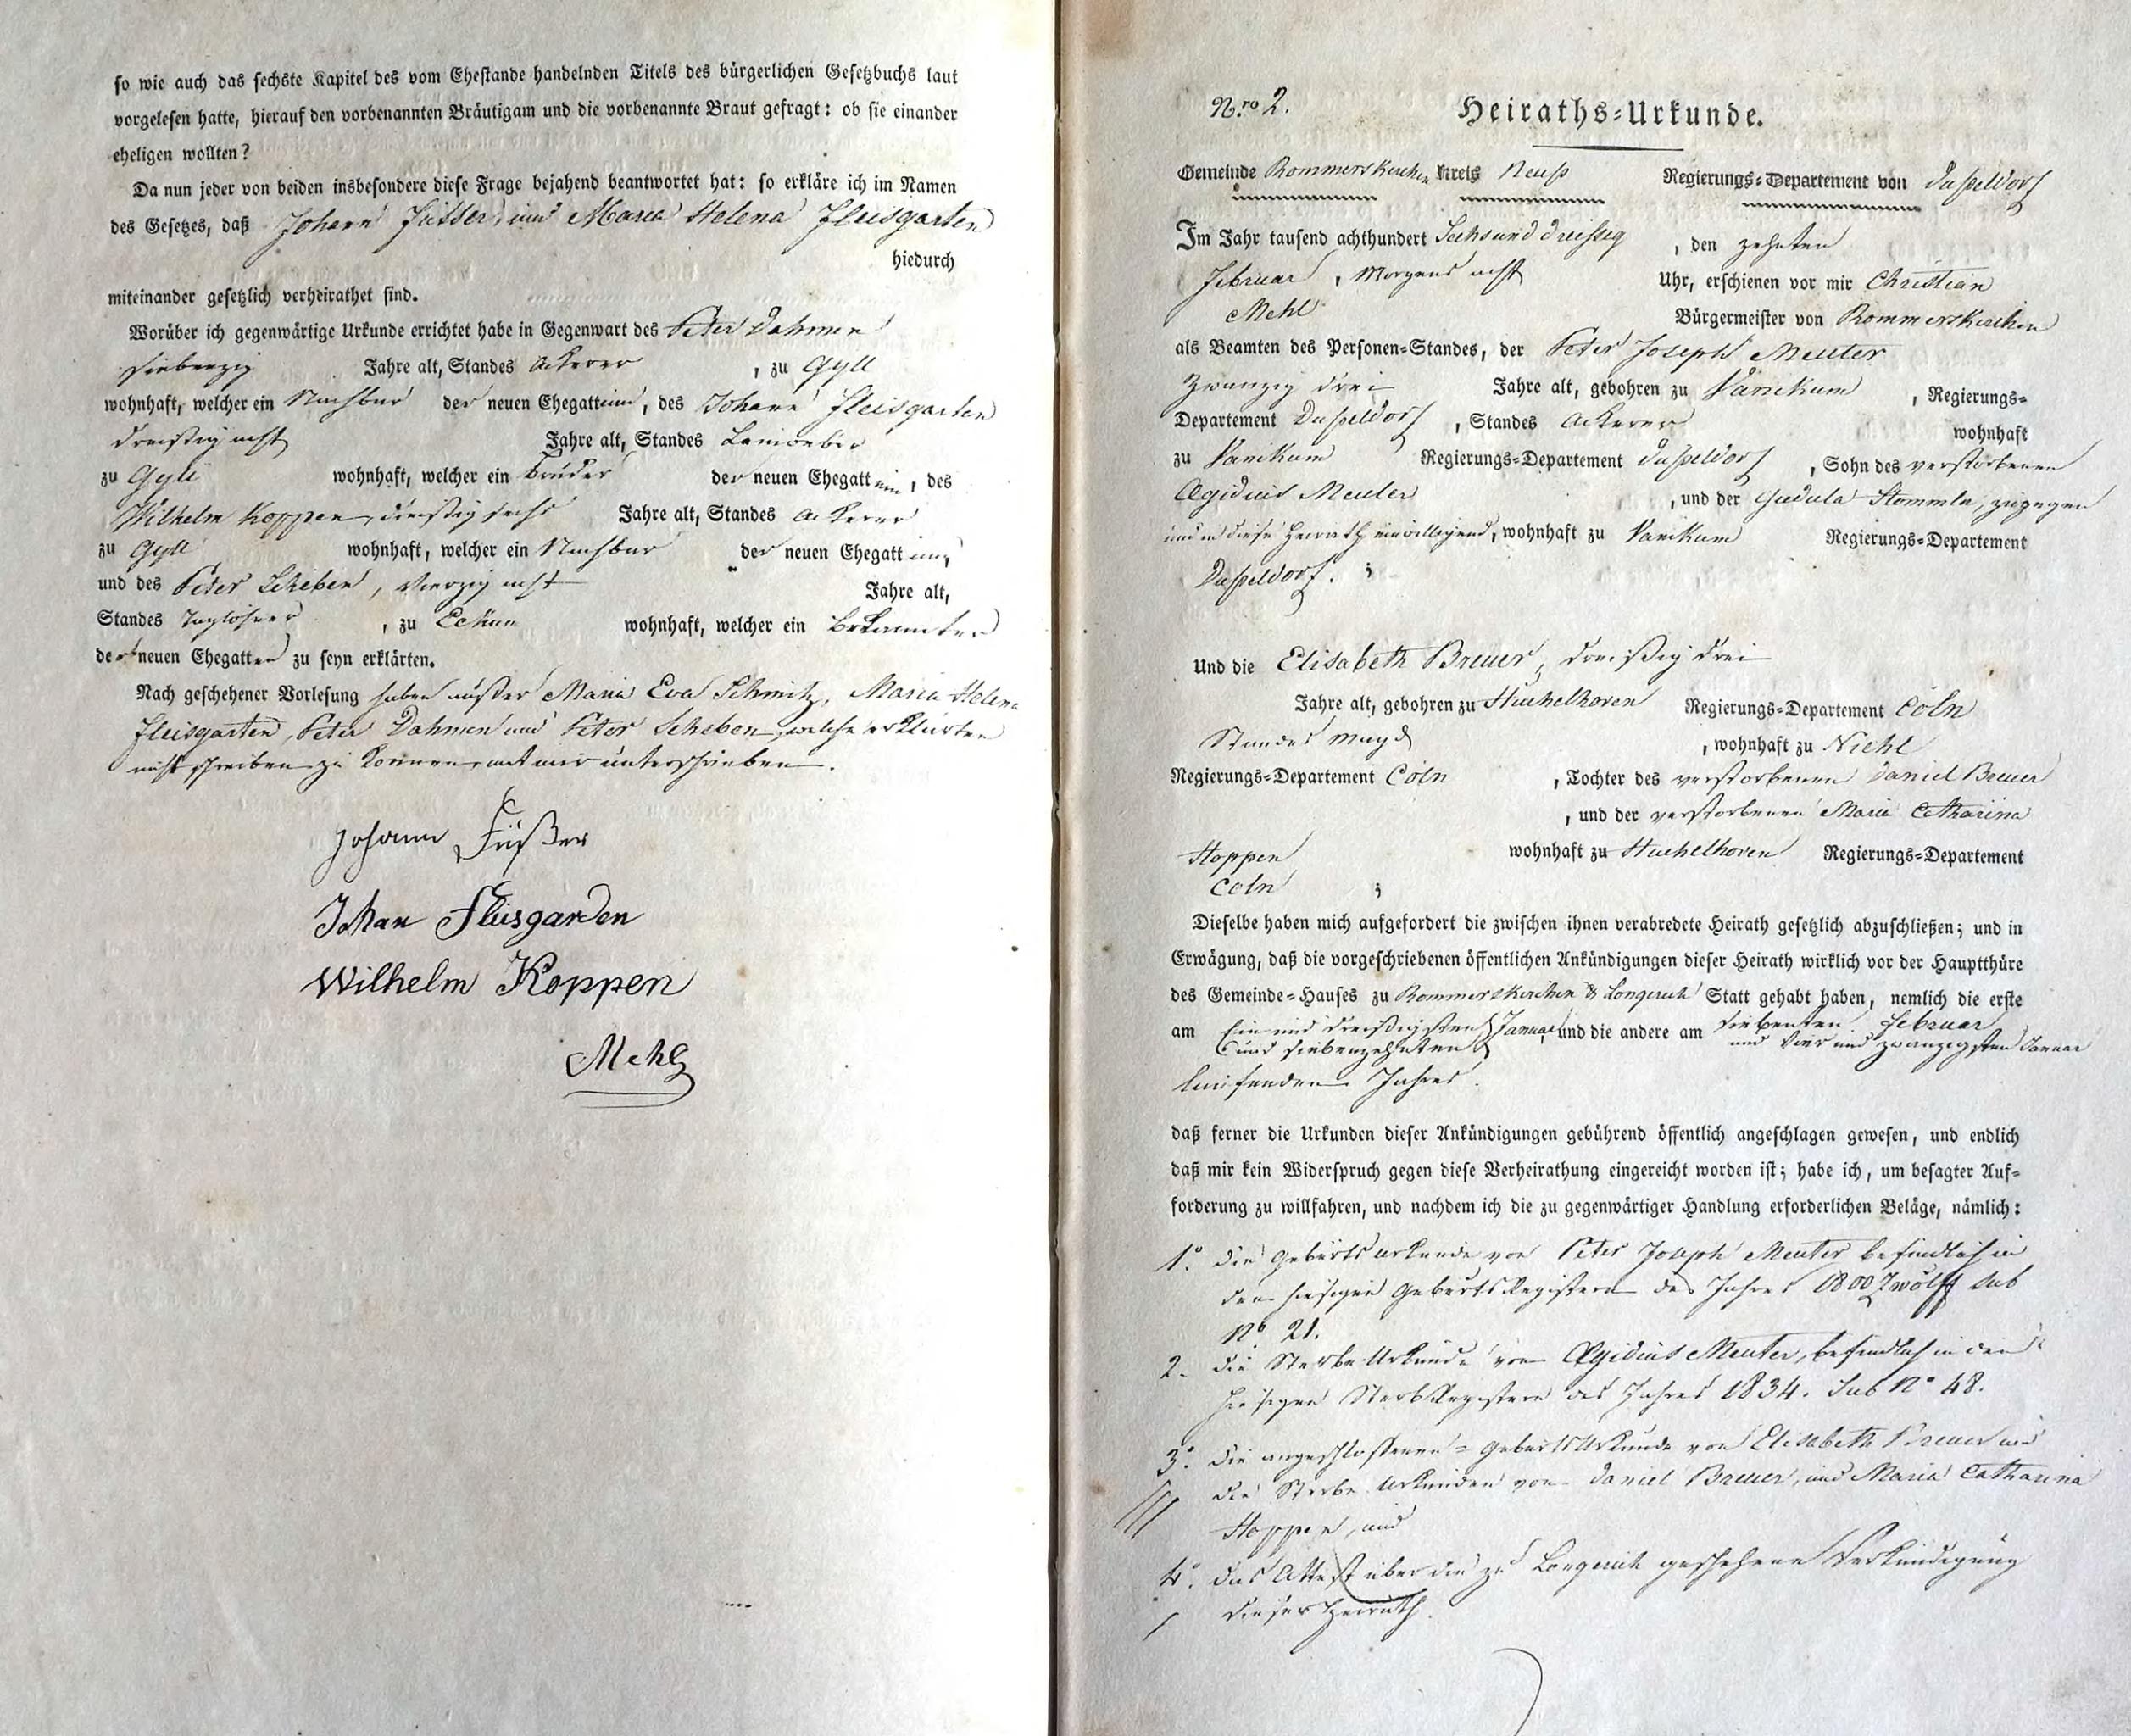 so wie auch das sechste Kapitel des vom Ehestande handelnden Titels des bürgerlichen Gesetzbuchs laut
vorgelesen hatte, hierauf den vorbenannten Bräutigam und die vorbenannte Braut gefragt: ob sie einander
eheligen wollten?
Da nun jeder von beiden insbesondere diese Frage bejahend beantwortet hat: so erkläre ich im Namen
des Gesetzes, daß Johann Füsser, und Maria Helena Fleisgarten
hiedurch
miteinander gesetzlich verheirathet sind.
Worüber ich gegenwärtige Urkunde errichtet habe in Gegenwart des Peter Dahmen
siebenzig Jahre alt, Standes Ackerer, zu Gyll
wohnhaft, welcher ein Nachbar der neuen Ehegattinn, des Johann Fleisgarten
dreißig acht Jahre alt, Standes Leinweber
zu Gyll wohnhaft, welcher ein Bruder der neuen Ehegattinn, des
Wilhelm Koppen, dreißig sechs Jahre alt, Standes Ackerer
zu Gyll wohnhaft, welcher ein Nachbar der neuen Ehegattinn,
und des Peter Scheben, vierzig acht Jahre alt,
Standes Taglöhner, zu Eckum wohnhaft, welcher ein Bekannter
der neuen Ehegatten zu seyn erklärten.
Nach geschehener Vorlesung haben außer Maria Eva Schmitz, Maria Helena
Fleisgarten, Peter Dahmen und Peter Scheben, welche erklärten
nicht schreiben zu können, mit mir unterschrieben.
Johann Füßer
Johan Fleisgarden
Wilhelm Koppen
Mehl
N.ro 2. Heiraths-Urkunde.
Gemeinde Rommerskirchen Kreis Neuss Regierungs-Departement von Dusseldorf
Im Jahr tausend achthundert Sechsund dreissig, den zehnten
Februar, Morgens acht Uhr, erschienen vor mir Christian
Mehl Bürgermeister von Rommerskirchen
als Beamten des Personen-Standes, der Peter Joseph Meuter
Zwanzig drei Jahre alt, gebohren zu Vanikum, Regierungs-
Departement Dusseldorf, Standes Ackerer wohnhaft
zu Vanikum Regierungs-Departement Dusseldorf, Sohn des verstorbenen
Ægidius Meuter, und der Gudula Stommeln, zugegen
und in diese Heirath einwilligend, wohnhaft zu Vanikum Regierungs-Departement
Dusseldorf. ;
Und die Elisabeth Breuer, dreißig drei
Jahre alt, gebohren zu Huchelhoven Regierungs-Departement Cöln
Standes Magd, wohnhaft zu Niehl
Regierungs-Departement Cöln, Tochter des verstorbenen Daniel Breuer
, und der verstorbenen Maria Catharina
Hoppen wohnhaft zu Huchelhoven Regierungs-Departement
Cöln ;
Dieselbe haben mich aufgefordert die zwischen ihnen verabredete Heirath gesetzlich abzuschließen; und in
Erwägung, daß die vorgeschriebenen öffentlichen Ankündigungen dieser Heirath wirklich vor der Hauptthüre
des Gemeinde-Hauses zu Rommerskirchen & Longerich Statt gehabt haben, nemlich die erste
am Ein und dreißigsten Januar und die andere am siebenten Februar
und siebenzehnten und vier und zwanzigsten Januar
laufenden Jahres.
daß ferner die Urkunden dieser Ankündigungen gebührend öffentlich angeschlagen gewesen, und endlich
daß mir kein Widerspruch gegen diese Verheirathung eingereicht worden ist; habe ich, um besagter Auf-
forderung zu willfahren, und nachdem ich die zu gegenwärtiger Handlung erforderlichen Beläge, nämlich:
1.° die Geburts Urkunde von Peter Joseph Meuter befindlich in
den hiesigen Geburts Registern des Jahres 1800 Zwölff sub
N° 21.
2. die Sterbe Urkunde von Ægidius Meuter, befindlich in den
hiesigen Sterb Registern des Jahres 1834. sub N° 48.
3.° die angeschlossenen = Geburts Urkunde von Elisabeth Breuer und
die Sterbe Urkunden von Daniel Breuer, und Maria Catharina
Hoppen, und
4.° das Attest über die zu Longerich geschehene Verkündigung
dieser Heirath.